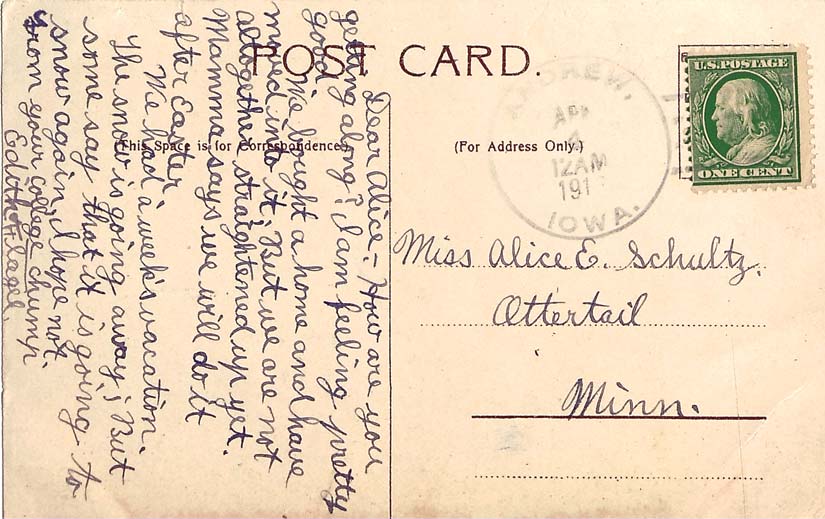 POST CARD.
(This Space is for Correspondence)
(For Address Only.)
Dear Alice:- How are you
getting along? I am feeling pretty
good.
We bought a home and have
moved into it. But we are not
altogether straightened up yet.
Mamma says we will do it
after Easter
We had a week's vacation.
The snow is going away; But
some say that it is going to
snow again, I hope not.
From your college chump
Edith
ANDREW,
APR
4
12AM
191
IOWA.
U.S. POSTAGE
ONE CENT
Miss Alice E. Schultz,
Ottertail
Minn.